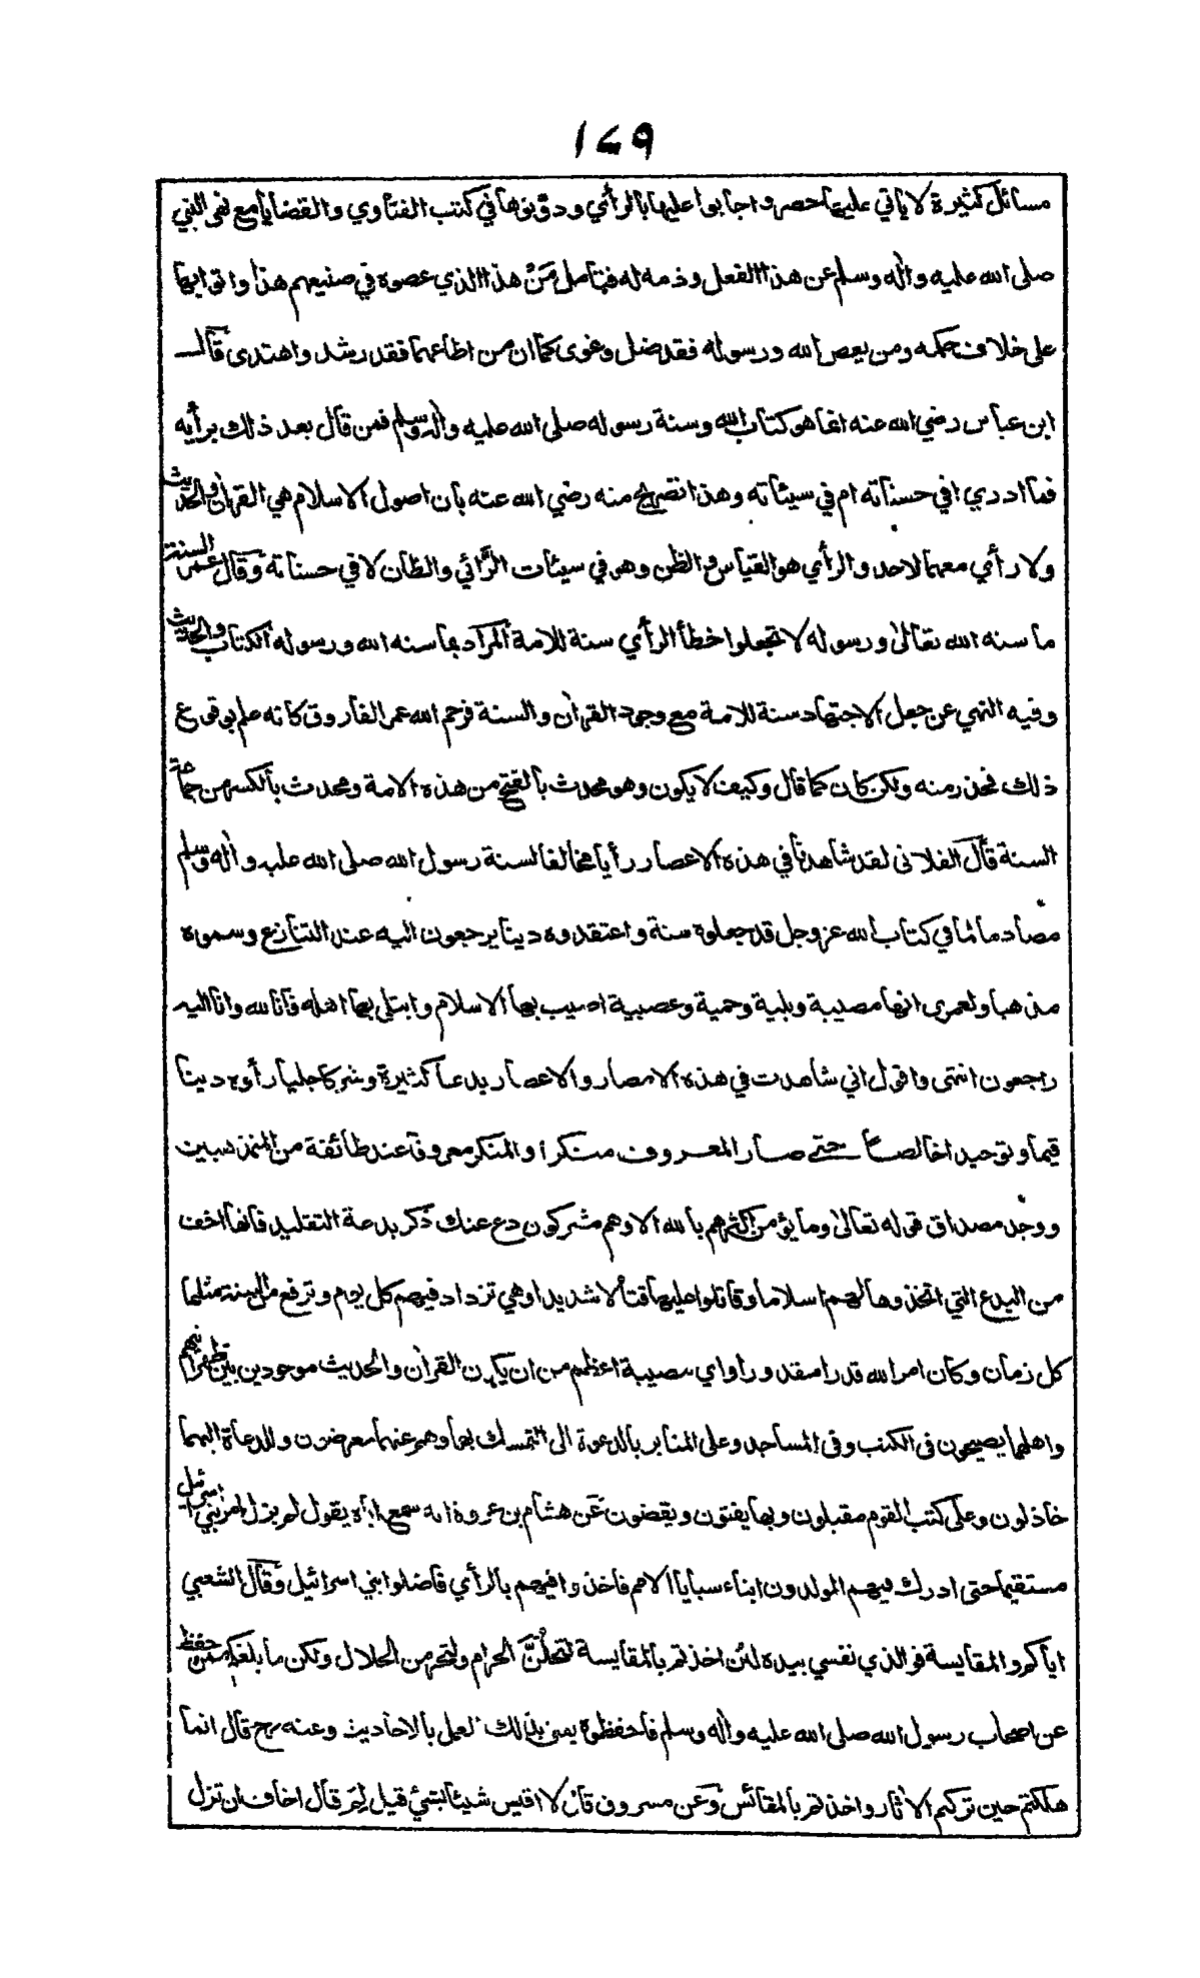 ١٤٩
مسائل كثيرة لا ياتي عليها حصر واجابوا عليها بالرأي ودوّنوها في كتب الفتاوي والقضايا مع نهى النبي
صلى الله عليه واٰله وسلم عن هذا الفعل وذمه له فتامل مَنْ هذا الذي عصوه في صنيعهم هذا واتوا بها
على خلاف حكمه ومن يعص الله ورسوله فقد ضل وغوى كما ان من اطاعهما فقد رشد واهتدى قال
ابن عباس رضي الله عنه انما هو كتاب الله وسنة رسوله صلى الله عليه واٰله وسلم فمن قال بعد ذلك برأيه
فما ادري افي حسناته ام في سيئاته وهذا تصريح منه رضي الله عنه بان اصول الاسلام هي القراٰن والحديث
ولا رأي معهما لاحد والرأي هو القياس والظن وهو في سيئات الرَّائي والظان لا في حسناته وقال عمر السنة
ما سنه الله تعالىٰ ورسوله لا تجعلوا خطأ الرأي سنة للامة المراد بما سنه الله ورسوله الكتاب والحديث
وفيه النهي عن جعل الاجتهاد سنة للامة مع وجود القراٰن والسنة فرحم الله عمر الفاروق كانه علم بوقوع
ذلك فحذر منه ولكن كان كما قال وكيف لا يكون وهو محدث بالفتح من هذه الامة ومحدث بالكسر من جماعة
السنة قال الفلانى لقد شاهدنا في هذه الاعصار رأيا مخالفا لسنة رسول الله صلى الله عليه واٰله وسلم
مصادما لما في كتاب الله عز وجل قد جعلوه سنة واعتقدوه دينا يرجعون اليه عند التنازع وسموه
مذهبا ولعمرى انها مصيبة وبلية وحمية وعصبية اصيب بها الاسلام وابتلى بها اهله فانا لله وانا اليه
راجعون انتهى واقول اني شاهدت في هذه الامصار والاعصار بدعا كثيرة وشركا جليا رأوه دينا
قيما وتوحيدا خالصا حتى صار المعروف منكرا والمنكر معروفا عند طائفة من المتمذهبين
ووجد مصداق قوله تعالىٰ وما يؤمن اكثرهم بالله الا وهم مشركون دع عنك ذكر بدعة التقليد فانها اخف
من البدع التي اتخذوها لهم اسلاما وقاتلوا عليها قتالا شديدا وهي تزداد فيهم كل يوم وترفع من السنة مثلها
كل زمان وكان امر الله قدرا مقدورا واي مصيبة اعظم من ان يكون القراٰن والحديث موجودين بين ظهرانيهم
واهلهما يصيحون فى الكتب وفى المساجد وعلى المنابر بالدعوة الى التمسك بهما وهم عنهما معرضون وللدعاة اليهما
خاذلون وعلى كتب القوم مقبلون وبها يفتون ويقضون عَن هشام بن عروة انه سمع اباه يقول لم يزل امر بني اسرائيل
مستقيما حتى ادرك فيهم المولدون ابناء سبايا الامم فاخذوا فيهم بالرأي فاضلوا بني اسرائيل وقال الشعبي
اياكم والمقايسة فوالذي نفسي بيده لئن اخذتم بالمقايسة لتحلُنَّ الحرام ولتحرمن الحلال ولكن ما بلغكم ممن حفظ
عن اصحاب رسول الله صلى الله عليه واٰله وسلم فاحفظوه يعني بذلك العمل بالاحاديث وعنه رح قال انما
هلكتم حين تركتم الاٰثار واخذتم بالمقائس وَعَن مسروق قال لا اقيس شيئا بشئ قيل لِمَ قال اخاف ان تزل